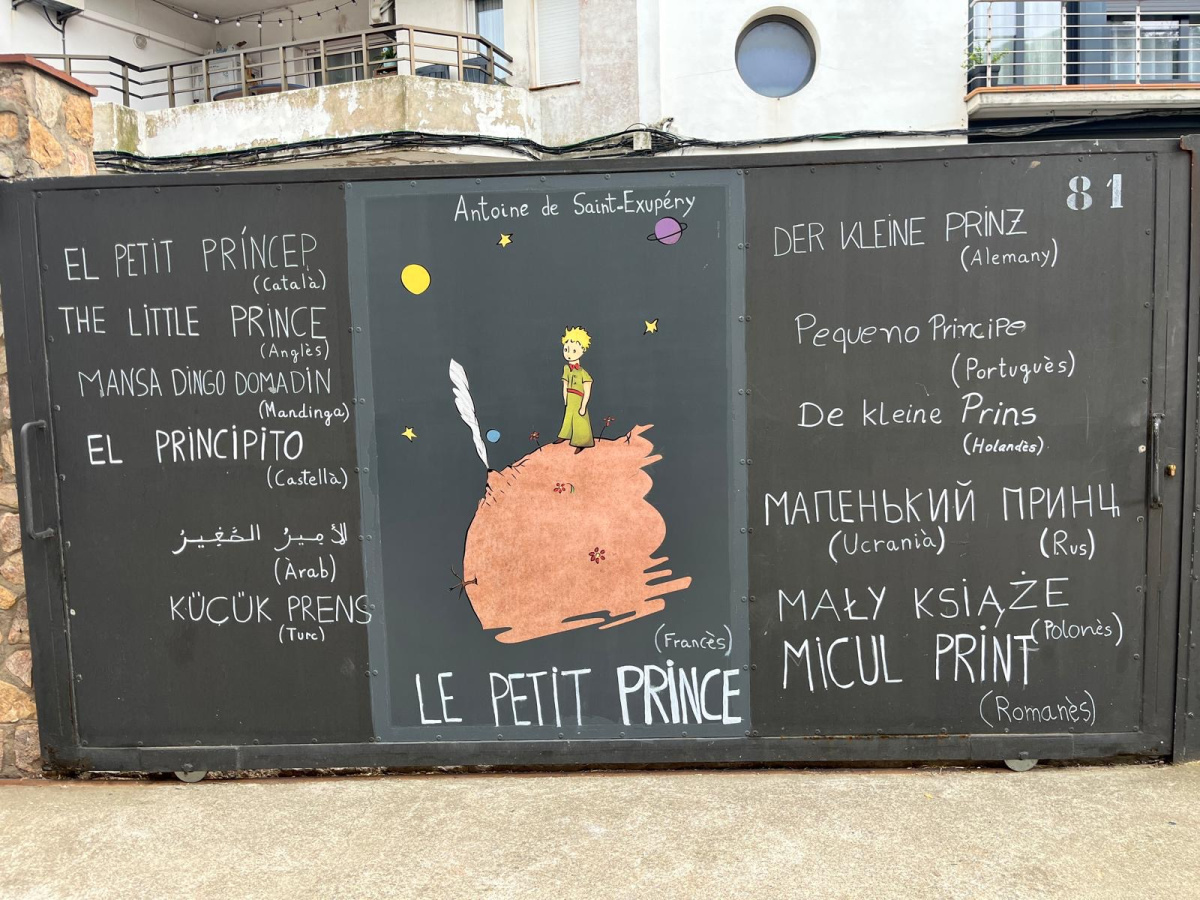 EL PETIT PRÍNCEP
(Català)
THE LITTLE PRINCE
(Anglès)
MANSA DINGO DOMADIN
(Mandinga)
EL PRINCIPITO
(Castellà)
(Àrab)
KÜÇÜK PRENS
(Turc)
Antoine de Saint-Exupéry
(Francès)
LE PETIT PRINCE
81
DER KLEINE PRINZ
(Alemany)
Pequeno Principe
(Portuguès)
De kleine Prins
(Holandès)
МАПЕНЬКИЙ ПРИНЦ
(Ucranià) (Rus)
MAŁY KSIĄŻE
(Polonès)
MICUL PRINT
(Romanès)